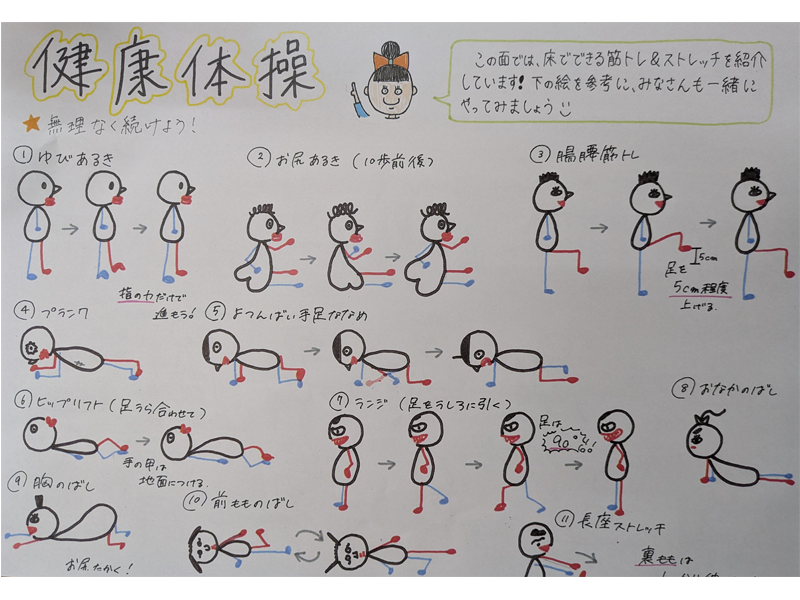 健康体操
この面では、床でできる筋トレ&ストレッチを紹介
しています!下の絵を参考に、みなさんも一緒に
やってみましょう
★無理なく続けよう!
① ゆびあるき
指の力だけで
進もう!
② お尻あるき(10歩前後)
③ 腸腰筋トレ
5cm
足を
5cm程度
上げる.
④ プランク
⑤ よつんばい手足ななめ
⑥ ヒップリフト(足うら合わせて)
手の甲は
地面につける.
⑦ ランジ (足をうしろに引く)
足は
90°!!
⑧ おなかのばし
⑨ 胸のばし
お尻たかく!
⑩ 前もものばし
⑪ 長座ストレッチ
裏ももは